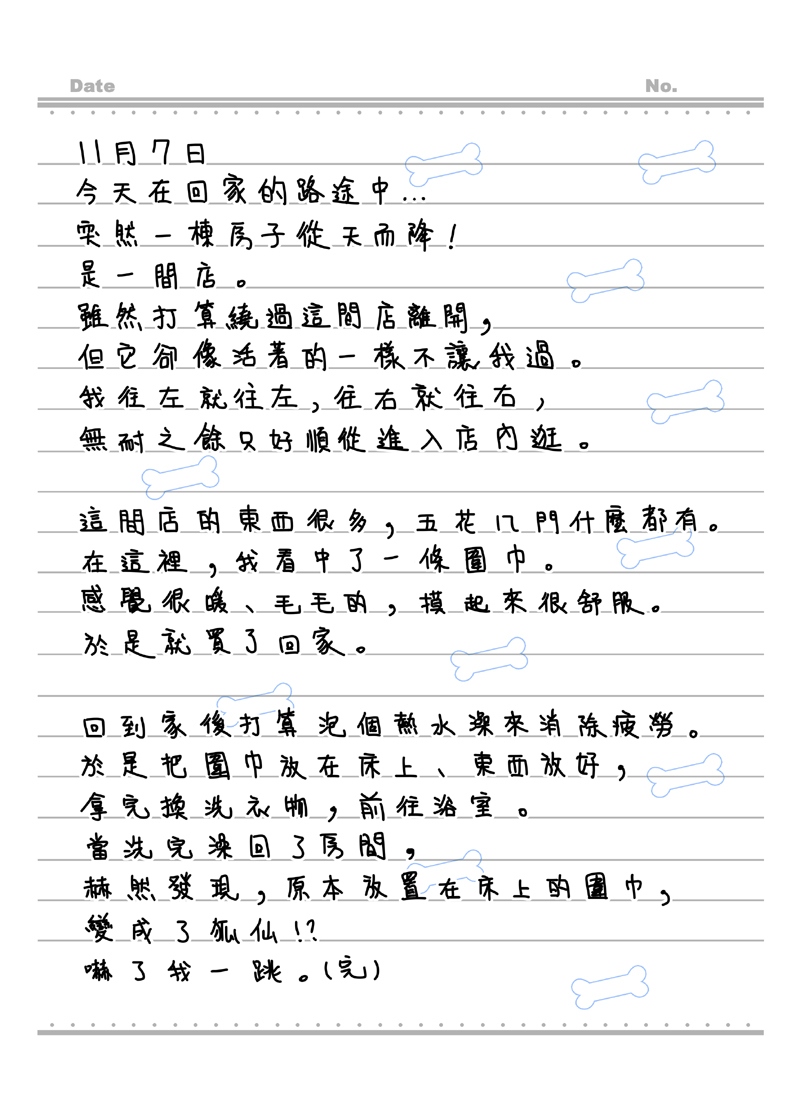 Date No.
11月7日
今天在回家的路途中...
突然一棟房子從天而降!
是一間店。
雖然打算繞過這間店離開,
但它卻像活著的一樣不讓我過。
我往左就往左,往右就往右,
無耐之餘只好順從進入店內逛。
這間店的東西很多,五花八門什麼都有。
在這裡,我看中了一條圍巾。
感覺很暖、毛毛的,摸起來很舒服。
於是就買了回家。
回到家後打算泡個熱水澡來消除疲勞。
於是把圍巾放在床上、東西放好,
拿完換洗衣物,前往浴室。
當洗完澡回了房間,
赫然發現,原本放置在床上的圍巾,
變成了狐仙!?
嚇了我一跳。(完)